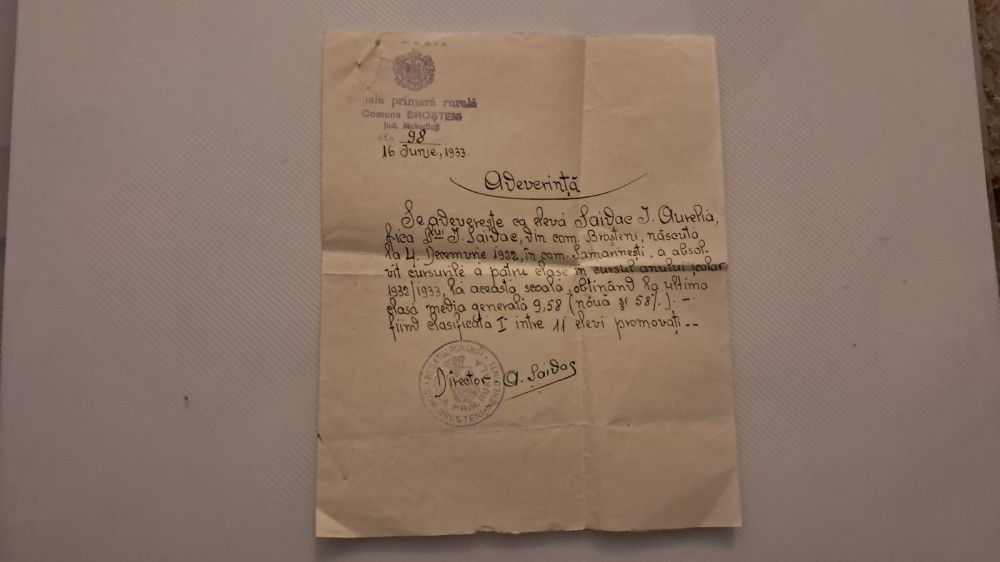 Școala primară rurală
Comuna BROȘTENI
Jud. Mehedinți
No. 98
16 Iunie, 1933.
Adeverință
Se adevereşte ca elevă Saidac I. Aurelia,
fica Dlui I. Saidac, din com. Broșteni, născută
la 4. Decemvrie 1922, in com. Samarinești. a absol-
vit cursurile a patru clase in cursul anului școlar
1932/1933, la aceasta scoală, obtinând la ultima
clasă media generală 9,58 (nouă și 58%). -
fiind clasificata I intre 11 elevi promovați --
Director A. Saidac